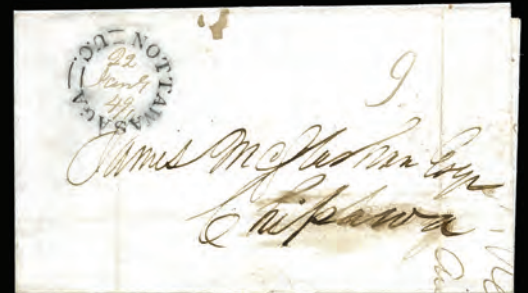 NOTTAWASAGA U.C.
22
Jany
49
9
James McGlashan Esqr
Chipawa